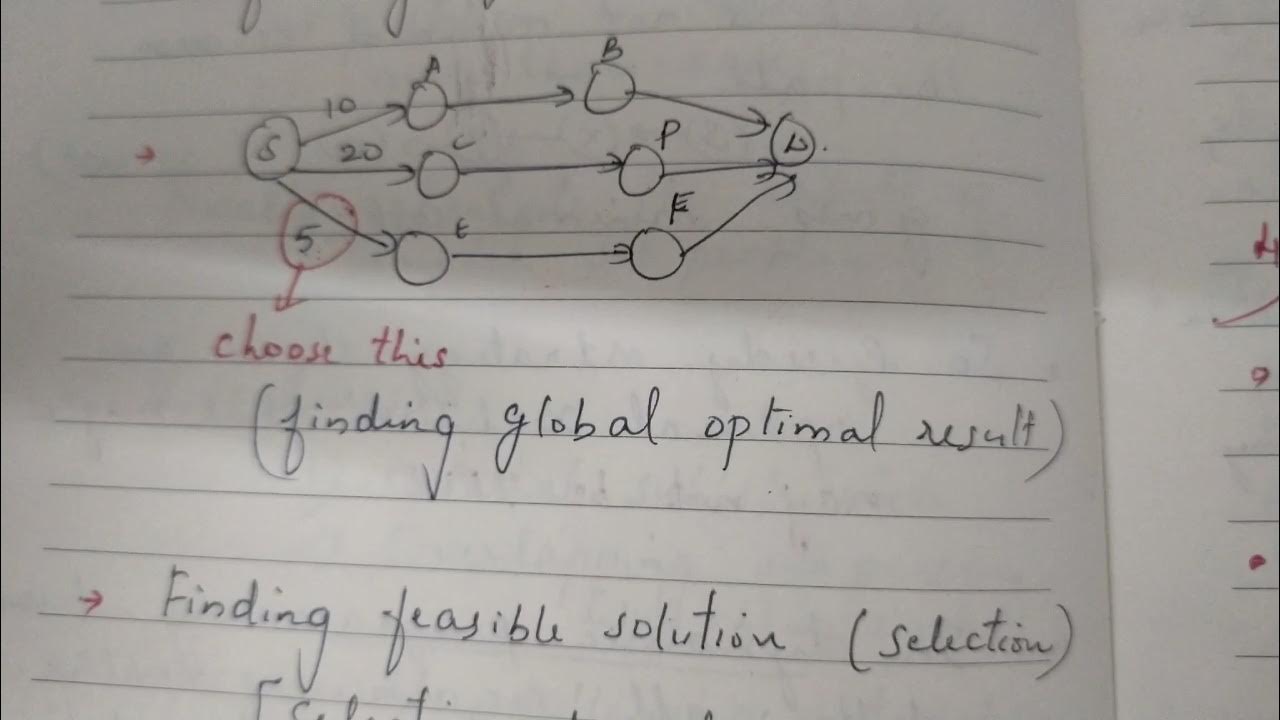 A B
10
S 20 C P D.
5 E F
choose this
(finding global optimal result)
→ Finding feasible solution (selection)